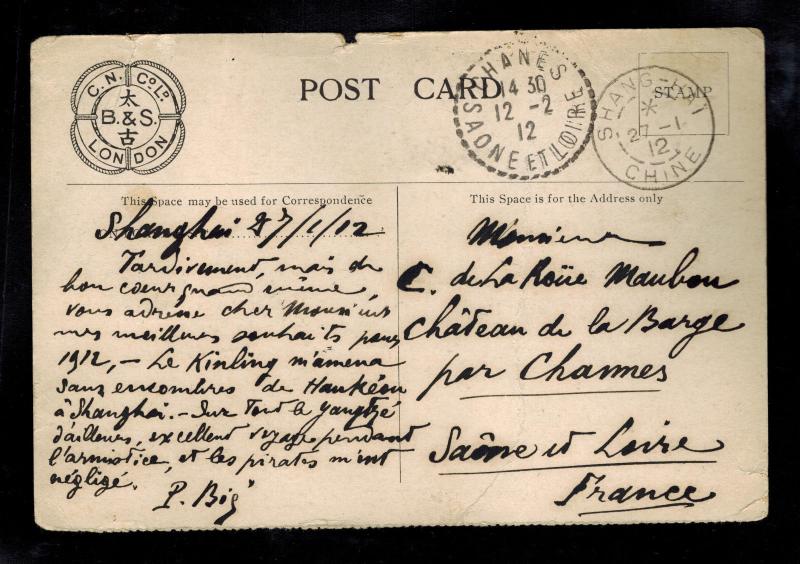 C.N. Co LD.
太
B. & S.
古
LONDON
POST CARD
STAMP
CHANES
14 30
12 -2
12
SAONE ET LOIRE
SHANG-HAI
*
27 -1
12
CHINE
This Space may be used for Correspondence
This Space is for the Address only
Shanghai 27/1/12
Tardivement, mais de
bon coeur quand même,
vous adresse cher Monsieur
mes meilleurs souhaits pour
1912, — Le Kinling m'amena
sans encombres de Hankéou
à Shanghai. — Sur tout le Yangtzé
d'ailleurs, excellent voyage pendant
l'armistice, et les pirates m'ont
négligé.
P. Big
Monsieur
C. de La Roüe Maubou
Château de la Barge
par Channes
Saône et Loire
France